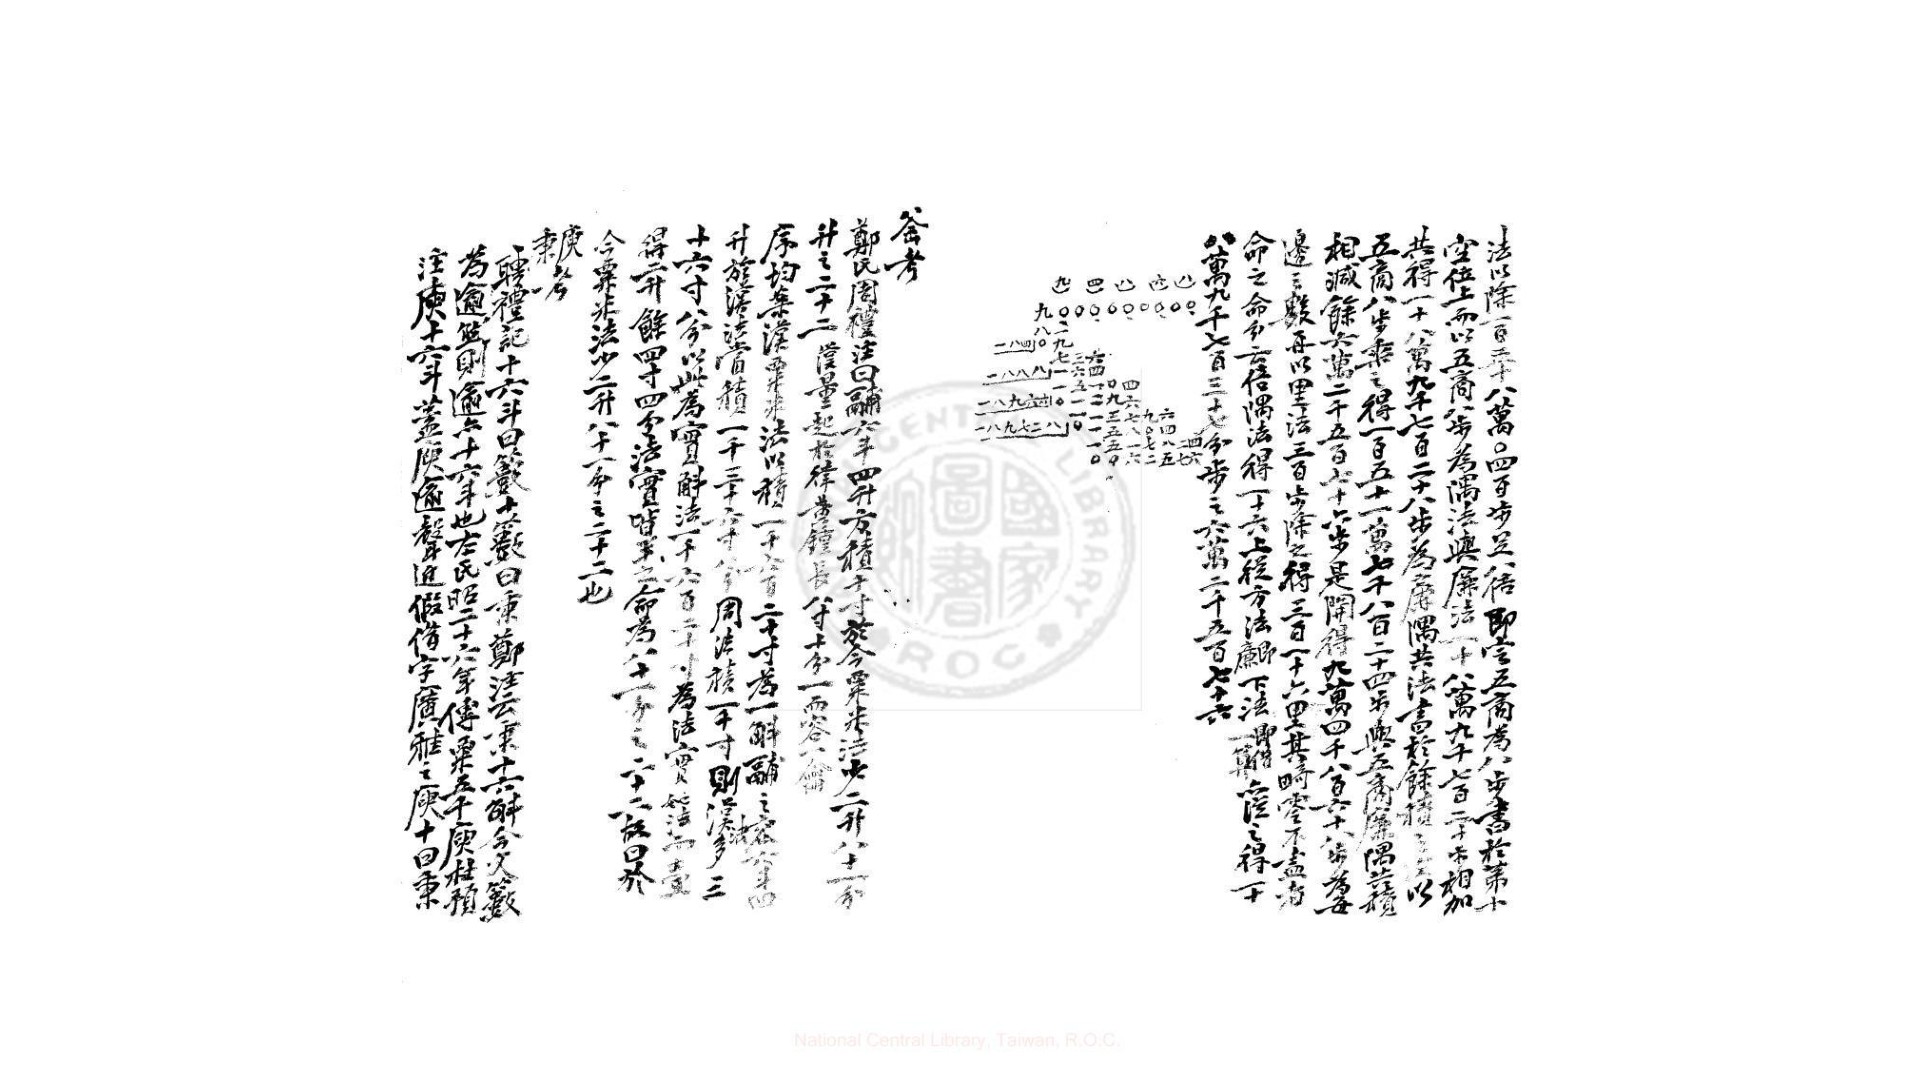 法以除一百五十八萬〇四百步足八倍即定五商為八步書於第十
空位上而以五商八步為隅法與廉法一十八萬九千七百二十步相加
共得一十八萬九千七百二十八步為廉隅共法書於餘積之左以
五商八步乘之得一百五十一萬七千八百二十四步與五商廉隅共積
相減餘六萬二千五百七十六步是開得九萬四千八百六十八步為每
邊之數再以里法三百步除之得三百一十六里其畸零不盡者
命之命分法倍隅法得一十六上從方法廉即下法即借一算從之得一十
八萬九千七百三十七分步之六萬二千五百七十六
釜考
鄭氏周禮注曰鬴六斗四升方積千寸於今粟米法少二升八十一分
升之二十二漢量起於律黃鐘長八寸十分一而容一龠
序均案漢粟米法以積一千六百二十寸為一斛鬴之容六斗四
升於漢法當積一千三十六寸八分周法積一千寸則漢法多三
十六寸八分以此為實斛法一千六百二十寸為法實如法而一
得二升餘四寸四分法實皆半之命為八十一分之二十二故曰於
今粟米法少二升八十一分之二十二也
庾秉考
聘禮記十六斗曰籔十籔曰秉鄭注云秉十六斛今文籔
為逾然則逾亦十六斗也左氏昭二十六年傳粟五千庾杜預
注庾十六斗蓋庾逾聲近假借字廣雅云庾十曰秉
National Central Library, Taiwan, R.O.C.